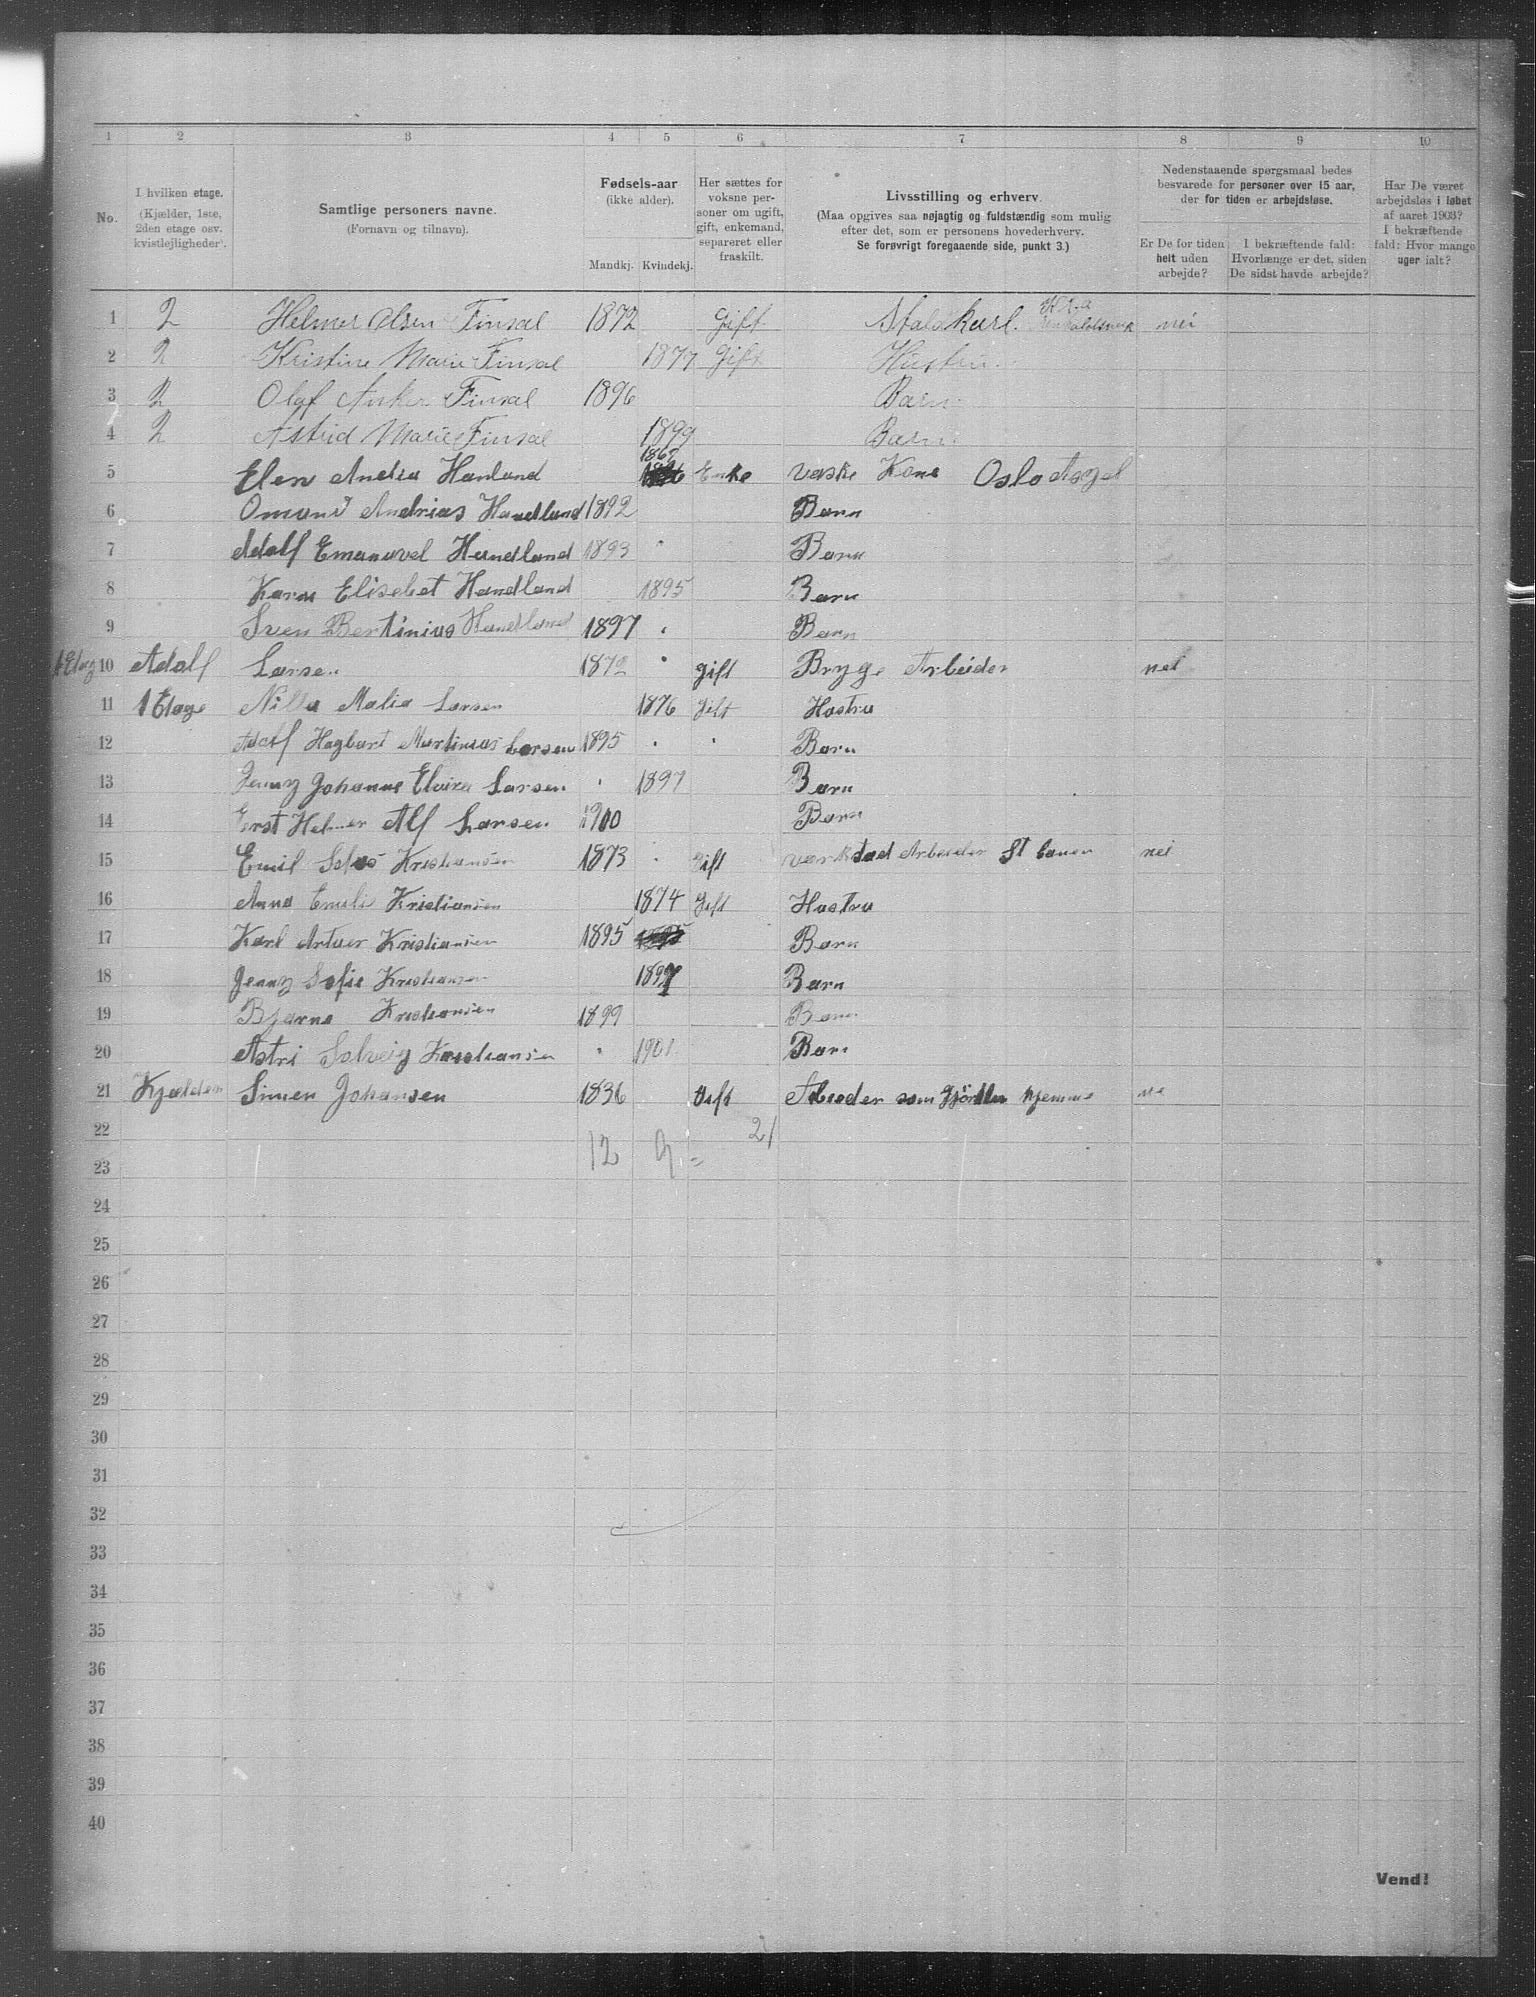 1 2 3 4 5 6 7 8 9 10
No.
I hvilken etage.
(Kjælder, 1ste,
2den etage osv.
kvistlejligheder).
Samtlige personers navne.
(Fornavn og tilnavn).
Fødsels-aar
(ikke alder).
Mandkj. Kvindekj.
Her sættes for
voksne per-
soner om ugift,
gift, enkemand,
separeret eller
fraskilt.
Livsstilling og erhverv.
(Maa opgives saa nøjagtig og fuldstændig som mulig
efter det, som er personens hovederhverv.
Se forøvrigt foregaaende side, punkt 3.)
Nedenstaaende spørgsmaal bedes
besvarede for personer over 15 aar,
der for tiden er arbejdsløse.
Er De for tiden
helt uden
arbejde?
I bekræftende fald:
Hvorlænge er det, siden
De sidst havde arbejde?
Har De været
arbejdsløs i løbet
af aaret 1903?
I bekræftende
fald: Hvor mange
uger ialt?
1 2 Helmer Olsen Finsal 1872 Gift Staldkarl. nei
2 2 Kristine Marie Finsal 1877 Gift Hustru.
3 2 Olaf Anker Finsal 1896 Barn.
4 2 Astrid Marie Finsal 1899 Barn.
5 Elen Andrea Hanland Enke vaske Kone Oslo
6 Omund Andrias Handland 1892 Barn
7 Adolf Emanuvel Handland 1893 Barn
8 Karen Elisebet Handland 1895 Barn
9 Sven Bertinius Handland 1897 Barn
1 Etag 10 Adolf Larsen 1872 gift Bryge Arbeider nei
11 1 Etage Nilla Malia Larsen 1876 Gift Hustru
12 Adolf Hagbart Martinius Larsen 1895 Barn
13 Jenny Johanne Elvira Larsen 1897 Barn
14 Helmer Alf Larsen 1900 Barn
15 Emil Kristiansen 1873 Gift varkstad Arbeider St banen nei
16 Anna Emeli Kristiansen 1874 Gift Hustru
17 Karl Artuer Kristiansen 1895 Barn
18 Jenny Sofie Kristiansen 1897 Barn
19 Bjarne Kristiansen 1899 Barn
20 Astri Solveig Kristiansen 1901 Barn
21 Kjælder Simen Johansen 1836 Gift som hjemme
22 21
23 12 9 =
24
25
26
27
28
29
30
31
32
33
34
35
36
37
38
39
40
Vend!